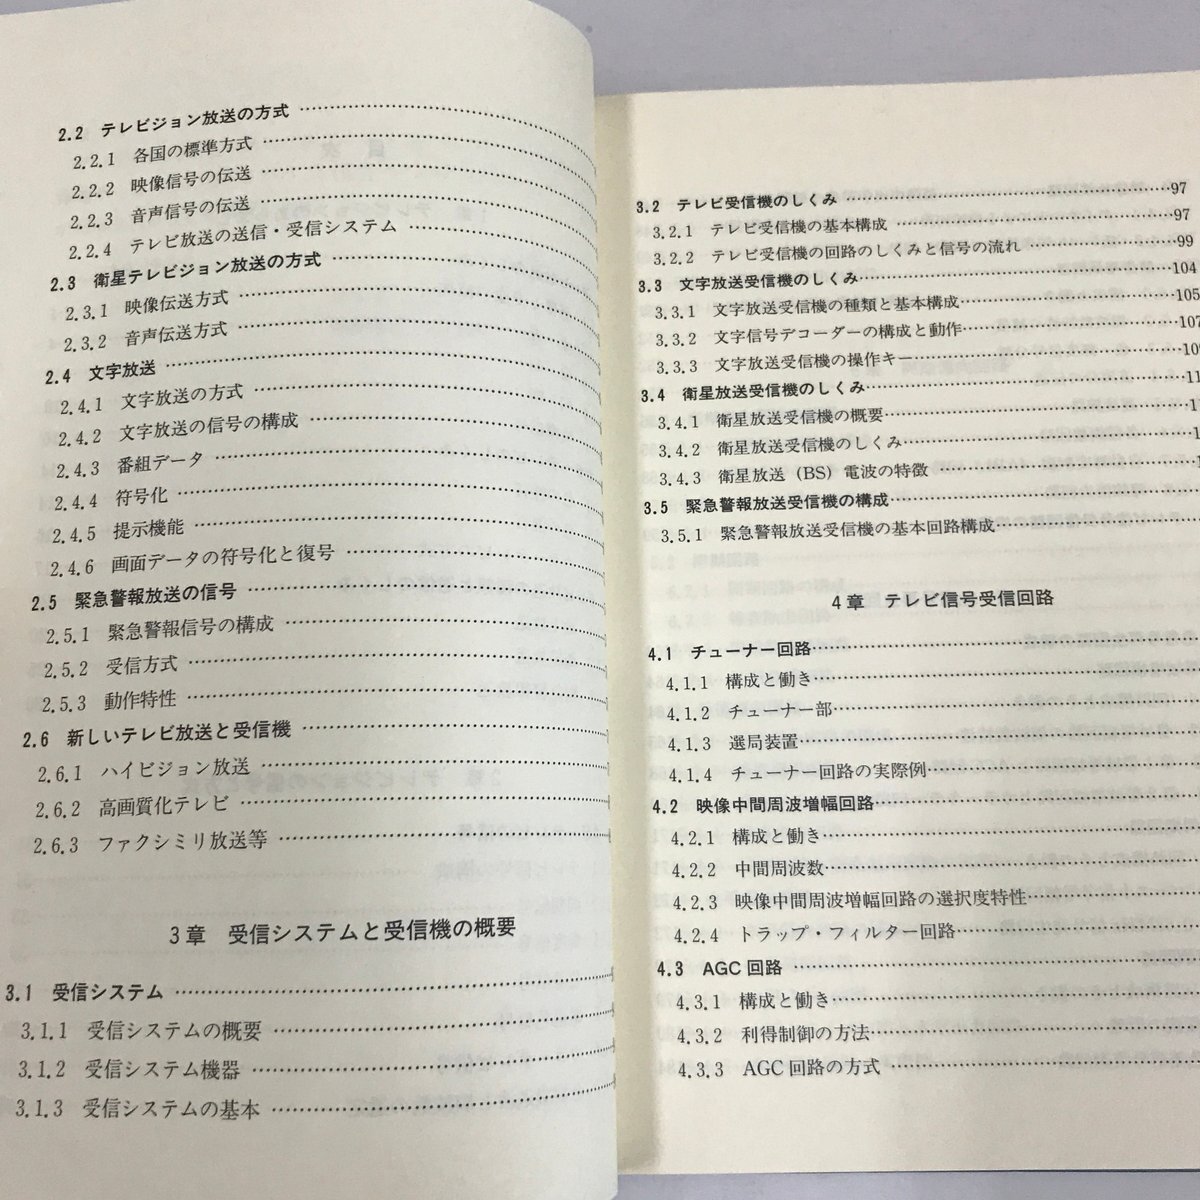 2.2 テレビジョン放送の方式
2.2.1 各国の標準方式
2.2.2 映像信号の伝送
2.2.3 音声信号の伝送
2.2.4 テレビ放送の送信・受信システム
2.3 衛星テレビジョン放送の方式
2.3.1 映像伝送方式
2.3.2 音声伝送方式
2.4 文字放送
2.4.1 文字放送の方式
2.4.2 文字放送の信号の構成
2.4.3 番組データ
2.4.4 符号化
2.4.5 提示機能
2.4.6 画面データの符号化と復号
2.5 緊急警報放送の信号
2.5.1 緊急警報信号の構成
2.5.2 受信方式
2.5.3 動作特性
2.6 新しいテレビ放送と受信機
2.6.1 ハイビジョン放送
2.6.2 高画質化テレビ
2.6.3 ファクシミリ放送等
3章 受信システムと受信機の概要
3.1 受信システム
3.1.1 受信システムの概要
3.1.2 受信システム機器
3.1.3 受信システムの基本
3.2 テレビ受信機のしくみ 97
3.2.1 テレビ受信機の基本構成 97
3.2.2 テレビ受信機の回路のしくみと信号の流れ 99
3.3 文字放送受信機のしくみ 104
3.3.1 文字放送受信機の種類と基本構成 105
3.3.2 文字信号デコーダーの構成と動作 107
3.3.3 文字放送受信機の操作キー 109
3.4 衛星放送受信機のしくみ
3.4.1 衛星放送受信機の概要
3.4.2 衛星放送受信機のしくみ
3.4.3 衛星放送（BS）電波の特徴
3.5 緊急警報放送受信機の構成
3.5.1 緊急警報放送受信機の基本回路構成
4章 テレビ信号受信回路
4.1 チューナー回路
4.1.1 構成と働き
4.1.2 チューナー部
4.1.3 選局装置
4.1.4 チューナー回路の実際例
4.2 映像中間周波増幅回路
4.2.1 構成と働き
4.2.2 中間周波数
4.2.3 映像中間周波増幅回路の選択度特性
4.2.4 トラップ・フィルター回路
4.3 AGC回路
4.3.1 構成と働き
4.3.2 利得制御の方法
4.3.3 AGC回路の方式